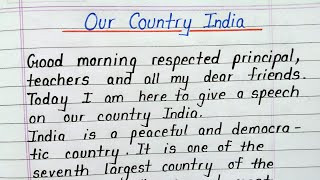 Our Country India
Good morning respected principal,
teachers and all my dear friends.
Today I am here to give a speech
on our country India.
India is a peaceful and democra-
tic country. It is one of the
seventh largest country of the